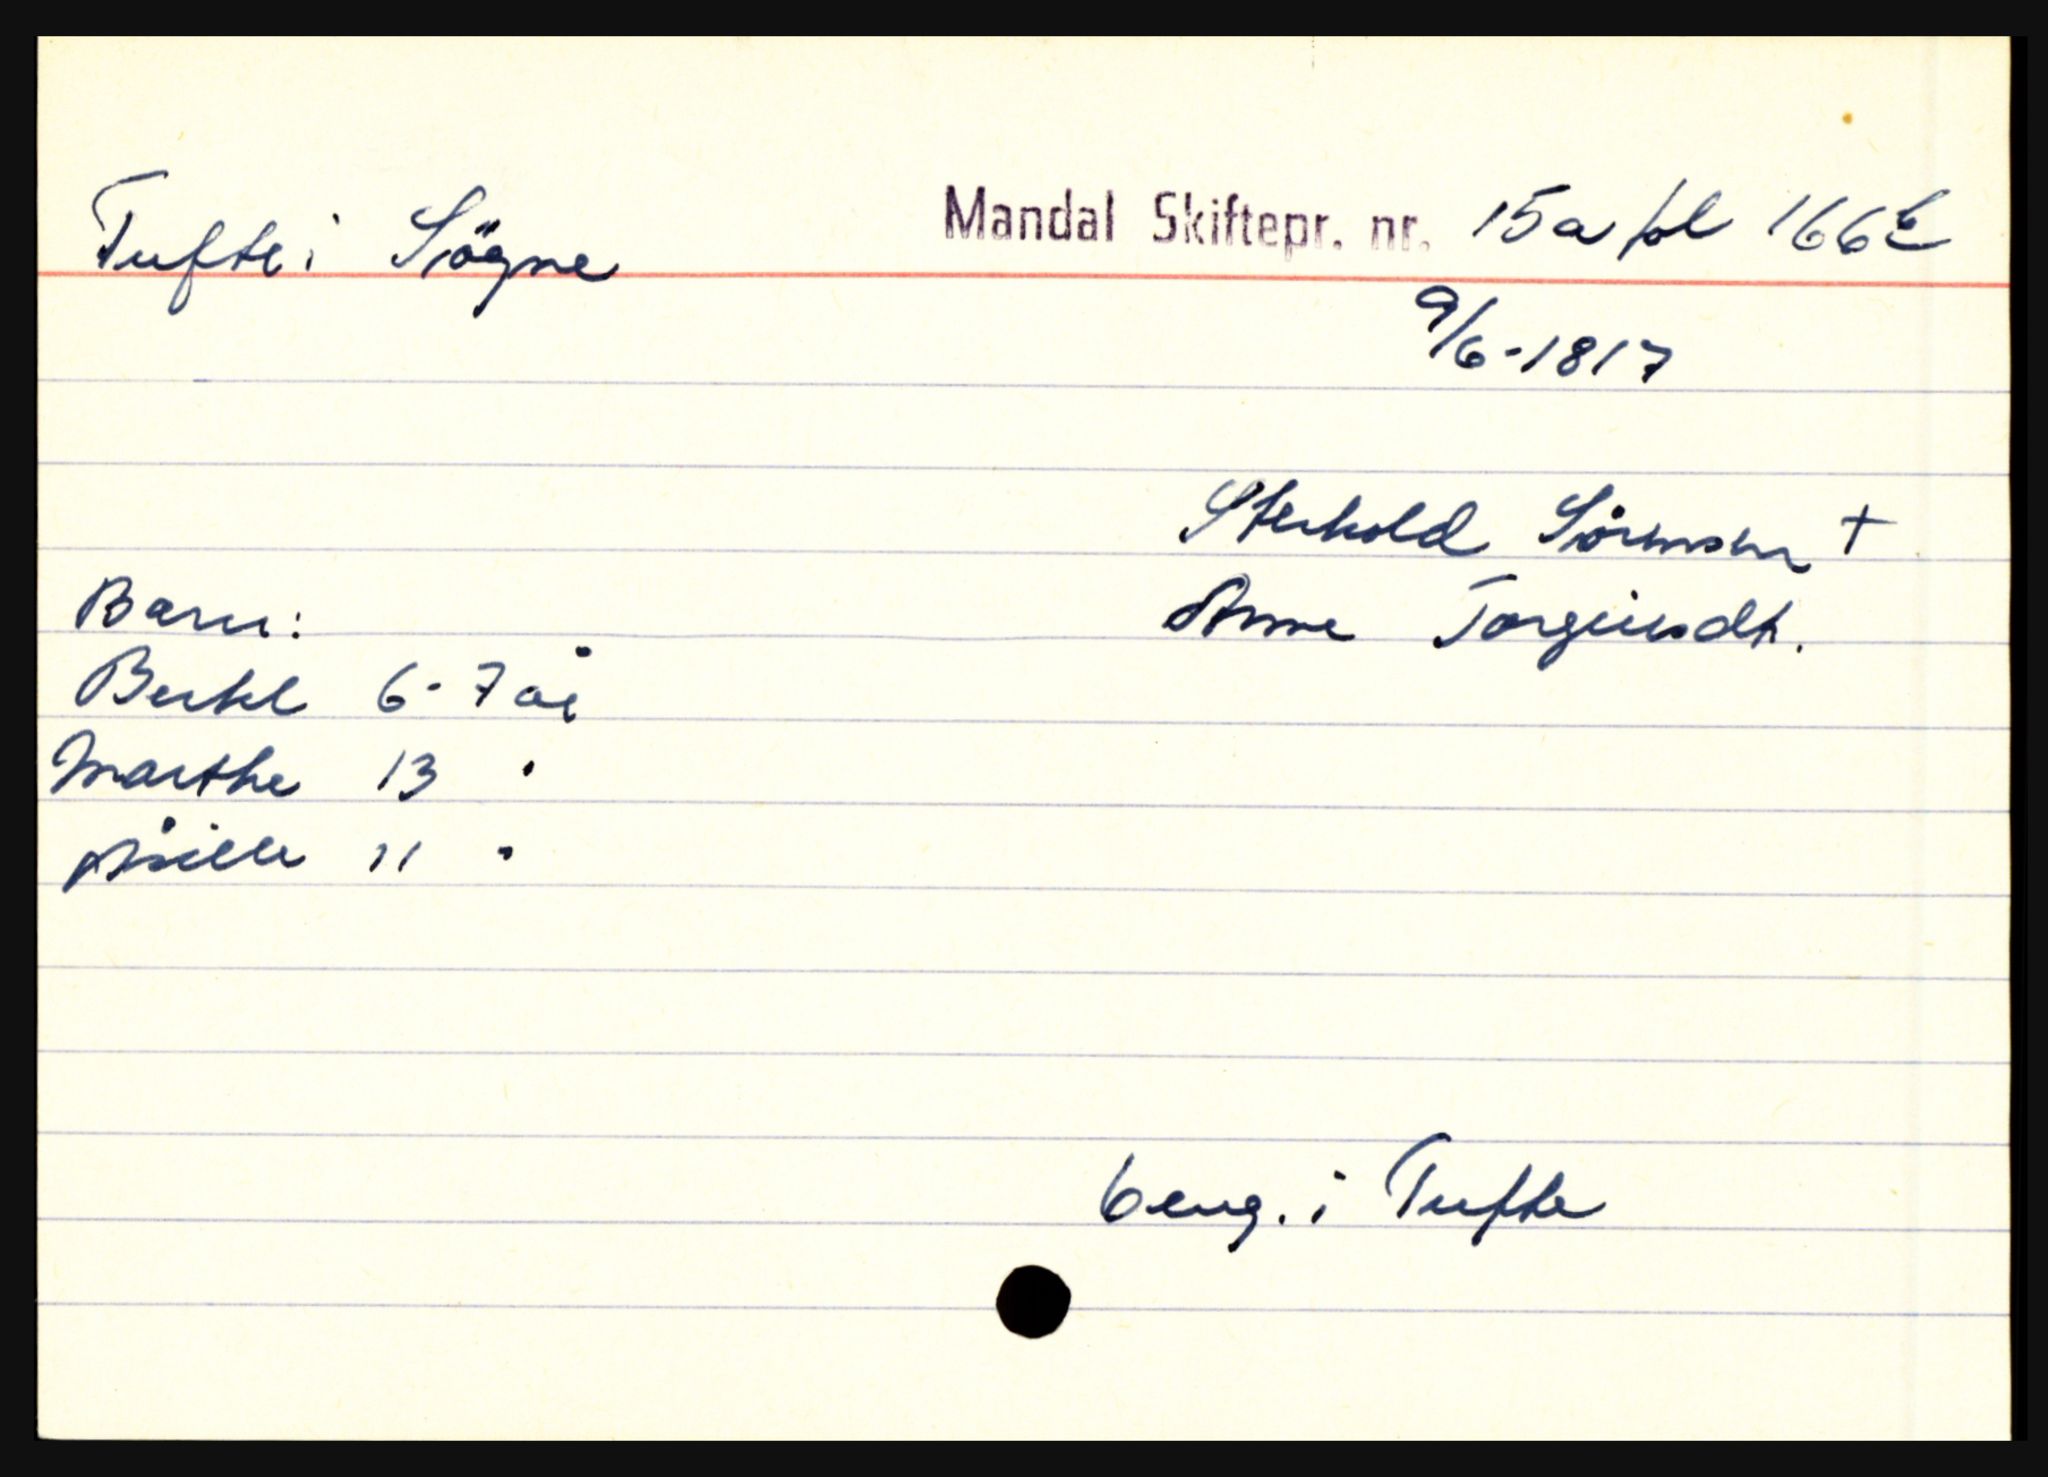 Tufte i Sögne Mandal Skiftepr. nr. 15a fol 166b
9/6-1817
Sterkold Sörensen +
Anne Torgiusdt.
Barn:
Bertel 6-7 år
Marthe 13 "
Åsille 11 "
beng. i Tufte